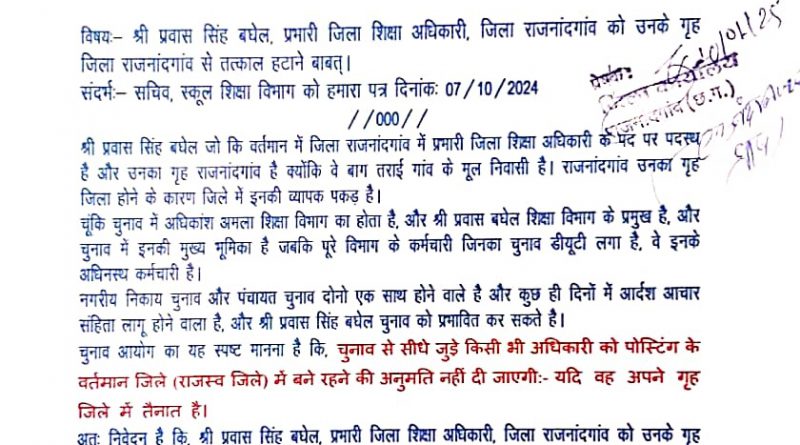 विषयः– श्री प्रवास सिंह बघेल, प्रभारी जिला शिक्षा अधिकारी, जिला राजनांदगांव को उनके गृह
जिला राजनांदगांव से तत्काल हटाने बाबत्।
संदर्भः– सचिव, स्कूल शिक्षा विभाग को हमारा पत्र दिनांकः 07/10/2024
//000//
श्री प्रवास सिंह बघेल जो कि वर्तमान में जिला राजनांदगांव में प्रभारी जिला शिक्षा अधिकारी के पद पर पदस्थ
है और उनका गृह राजनांदगांव है क्योंकि वे बाग तराई गांव के मूल निवासी है। राजनांदगांव उनका गृह
जिला होने के कारण जिले में इनकी व्यापक पकड़ है।
चूंकि चुनाव में अधिकांश अमला शिक्षा विभाग का होता है, और श्री प्रवास बघेल शिक्षा विभाग के प्रमुख है, और
चुनाव में इनकी मुख्य भूमिका है जबकि पूरे विभाग के कर्मचारी जिनका चुनाव डीयूटी लगा है, वे इनके
अधिनस्थ कर्मचारी है।
नगरीय निकाय चुनाव और पंचायत चुनाव दोनो एक साथ होने वाले है और कुछ ही दिनों में आर्दश आचार
संहिता लागू होने वाला है, और श्री प्रवास सिंह बघेल चुनाव को प्रभावित कर सकते है।
चुनाव आयोग का यह स्पष्ट मानना है कि, चुनाव से सीधे जुड़े किसी भी अधिकारी को पोस्टिंग के
वर्तमान जिले (राजस्व जिले) में बने रहने की अनुमति नहीं दी जाएगी:- यदि वह अपने गृह
जिले में तैनात है।
अतः निवेदन है कि, श्री प्रवास सिंह बघेल, प्रभारी जिला शिक्षा अधिकारी, जिला राजनांदगांव को उनके गृह